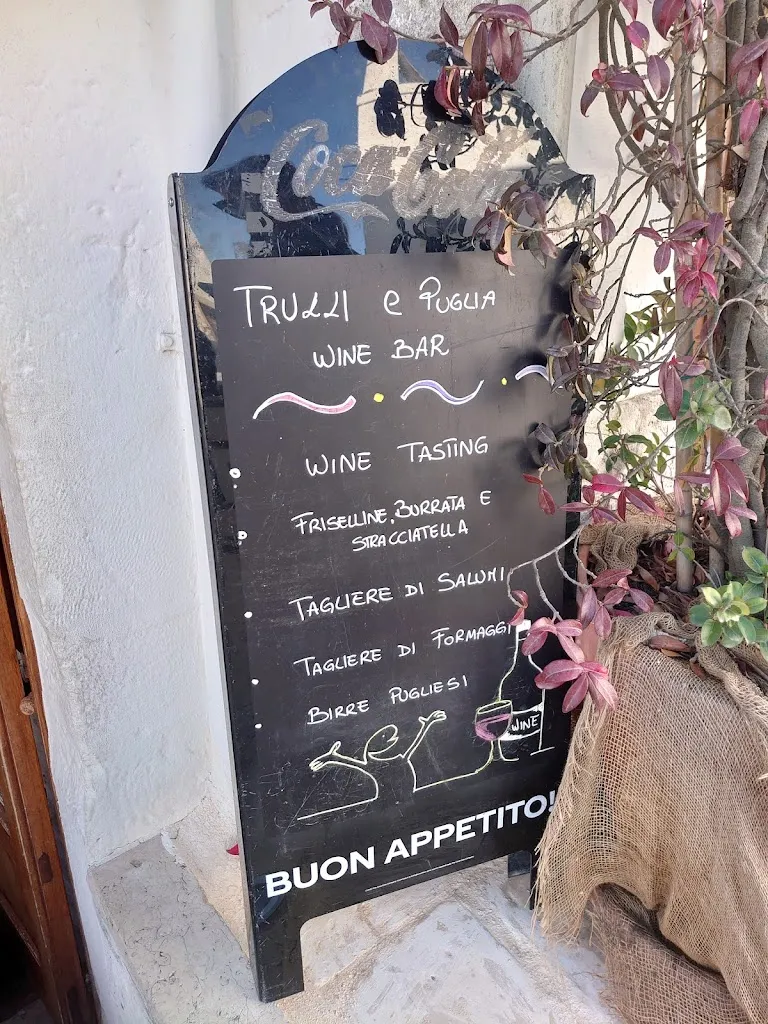 Coca-Cola
TRULLI e PUGLIA
WINE BAR
WINE TASTING
FRISELLINE, BURRATA E
STRACCIATELLA
TAGLIERE DI SALUMI
TAGLIERE DI FORMAGGI
BIRRE PUGLIESI
WINE
BUON APPETITO!